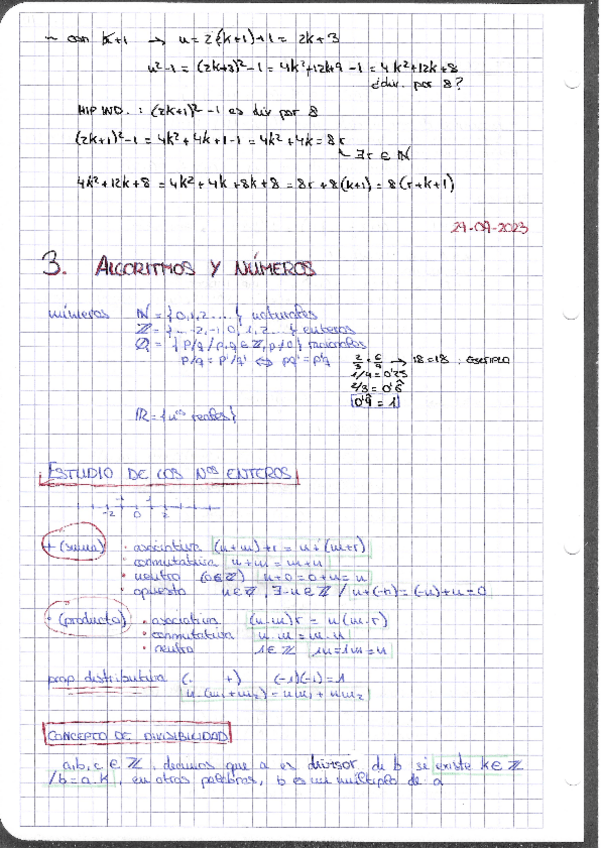 ~ con k+1 → n = 2(k+1)+1 = 2k+3
n²-1 = (2k+3)²-1 = 4k²+12k+9-1 = 4k²+12k+8
¿div. por 8?
HIP IND. : (2k+1)²-1 es div por 8
(2k+1)²-1 = 4k²+4k+1-1 = 4k²+4k = 8r
∃r ∈ ℕ
4k²+12k+8 = 4k²+4k+8k+8 = 8r+8(k+1) = 8(r+k+1)
3. ALGORITMOS Y NÚMEROS
números ℕ = {0,1,2....} naturales
ℤ = {...-2,-1,0,1,2...} enteros
ℚ = {p/q / p,q ∈ ℤ, p≠0} racionales
p/q = p'/q' ⇔ pq' = p'q
2/3 = 6/9 → 18=18 : EJEMPLO
1/4 = 0'25
2/3 = 0'6̂
0'9̂ = 1
ℝ = {nos reales}
ESTUDIO DE LOS Nos ENTEROS
-2 -1 0 1 2
+ (suma) · asociativa (n+m)+r = n+(m+r)
· conmutativa n+m = m+n
· neutro (0∈ℤ) n+0=0+n=n
· opuesto n∈ℤ, ∃-n∈ℤ / n+(-n)=(-n)+n=0
· (producto) · asociativa (n·m)r = n(m·r)
· conmutativa n·m = m·n
· neutro 1∈ℤ 1n=1n=n
prop distributiva (· +) (-1)(-1)=1
n·(m₁+m₂) = nm₁+nm₂
CONCEPTO DE DIVISIBILIDAD
a,b,c ∈ ℤ, decimos que a es divisor de b si existe k∈ℤ
/b=a·k, en otras palabras, b es un múltiplo de a